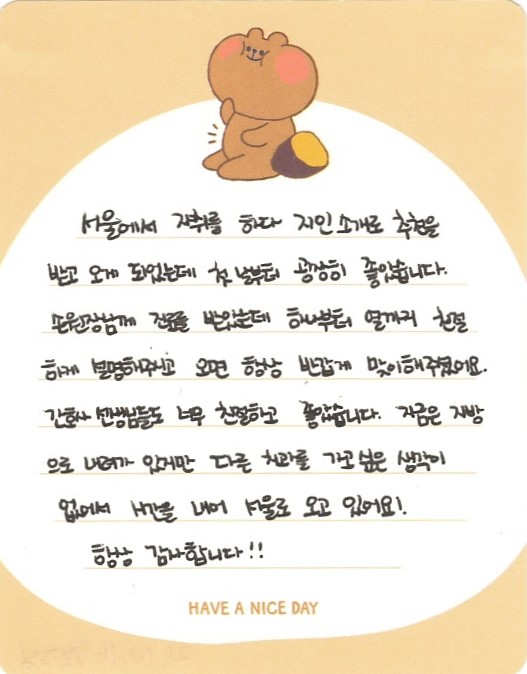 서울에서 자취를 하다 지인소개로 추천을
받고 오게 되었는데 첫 날부터 굉장히 좋았습니다.
손원장님께 진료를 받았는데 하나부터 열까지 친절
하게 설명해주시고 오면 항상 반갑게 맞이해주셨어요.
간호사 선생님들도 너무 친절하고 좋았습니다. 지금은 지방
으로 내려가 있지만 다른 치과를 가고싶은 생각이
없어서 시간을 내어 서울로 오고 있어요!.
항상 감사합니다!!
HAVE A NICE DAY